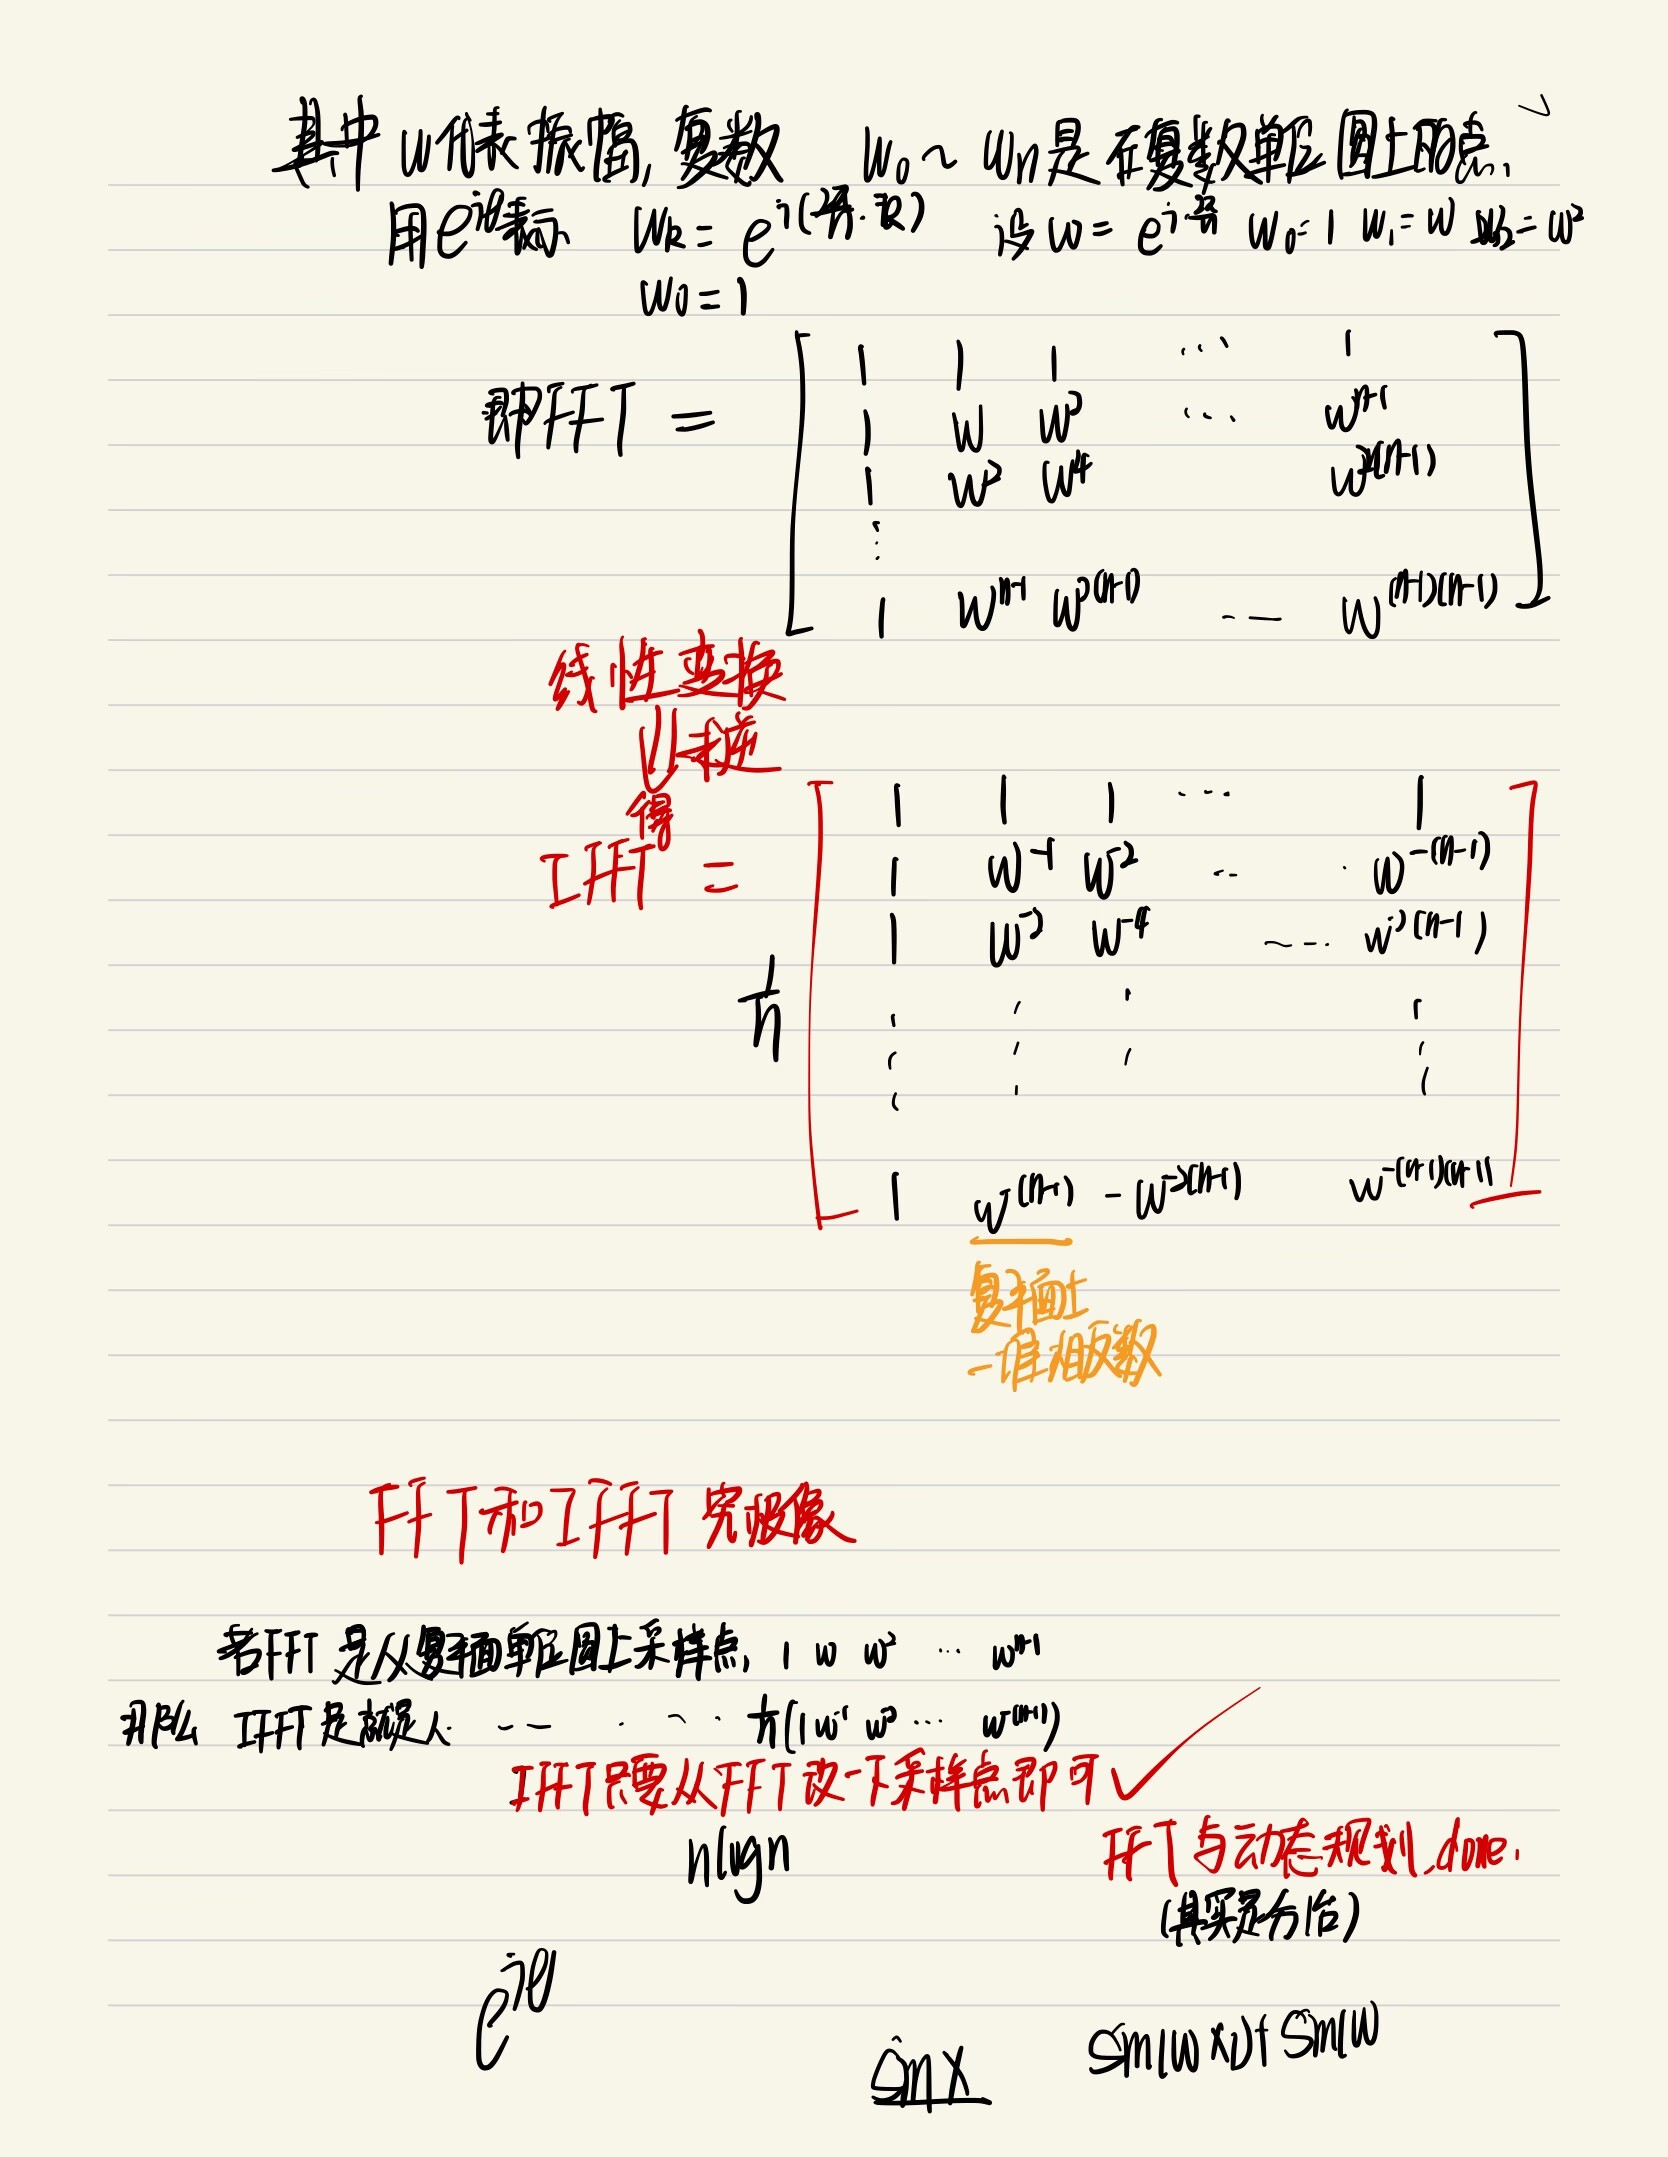 其中 w代表振幅, 复数 w₀ ~ wₙ是在复数单位圆上的点.
用e^{iθ}表示 w_k = e^{i(2π/n·k)} 设 w = e^{i2π/n} w₀=1 w₁=w w₂=w²
w₀=1
1 1 1 ... 1
即FFT = 1 w w² ... w^{n-1}
1 w² w⁴ w^{2(n-1)}
1 w^{n-1} w^{2(n-1)} ... w^{(n-1)(n-1)}
线性变换
⇓求逆
得
1 1 1 ... 1
IFFT = 1 w^{-1} w^{-2} ... w^{-(n-1)}
1 w^{-2} w^{-4} ... w^{-2(n-1)}
1/n
1 w^{(n-1)} - w^{-2(n-1)} w^{-(n-1)(n-1)}
复平面上
一堆相反数
FFT和IFFT 究极像
若FFT 是从复平面单位圆上采样点, 1 w w² ... w^{n-1}
那么 IFFT 是就是从 ... 1/n(1 w^{-1} w^{-2} ... w^{-(n-1)})
IFFT只要从FFT改一下采样点即可✓
nlogn
FFT与动态规划 done.
(其实是分治)
e^{iθ}
sin x sin(w x)+ sin(w